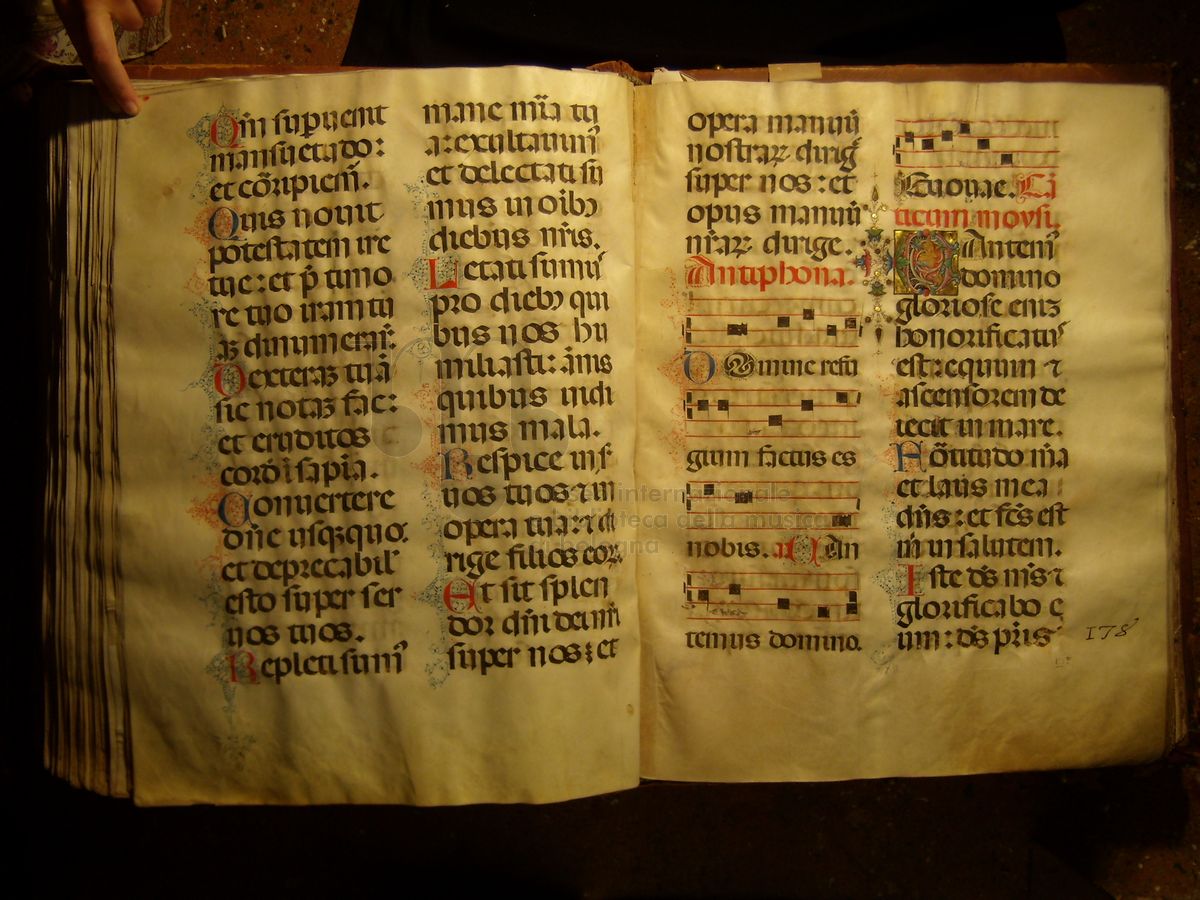 Qm̄ supuenit
mansuetudo:
et corripiem̄.
Quis nouit
potestatem ire
tue: et p̄ timo
re tuo iram tu
aꝫ dinumerar̄:
Dexteraꝫ tuā
sic notaꝫ fac:
et eruditos
cord̄ ī sapīa.
Conuertere
dn̄e usqꝫquo.
et deprecabil'
esto super ser
uos tuos.
Repleti sum'
mane mīa tu
a: exultauim'
et delectati su
mus in oībꝰ
diebus nr̄is.
Letati sum'
pro diebꝰ qui
bus nos hu
miliasti: ānis
quibus uidi
mus mala.
Respice ī s̄
uos tuos ⁊ in
opera tua: ⁊ di
rige filios eoꝝ.
Et sit splen
dor dn̄i dei nr̄i
super nos: et
opera manuū
nostraꝝ diriḡ
super nos: et
opus manuū
nr̄aꝝ dirige.
Antiphona.
Domine refu
gium factus es
nobis. a Can
temus domino.
Euouae. Cā
ticum moysi.
Cantem'
domino
gloriose eniꝫ
honorificatus
est: equum ⁊
ascensorem de
iecit in mare.
Fortitudo mā
et laus mea
dn̄s: et fc̄s est
m̄ in salutem.
Iste ds̄ m̄s ⁊
glorificabo e
um: ds̄ pr̄is
178
museo internazionale
biblioteca della musica
bologna